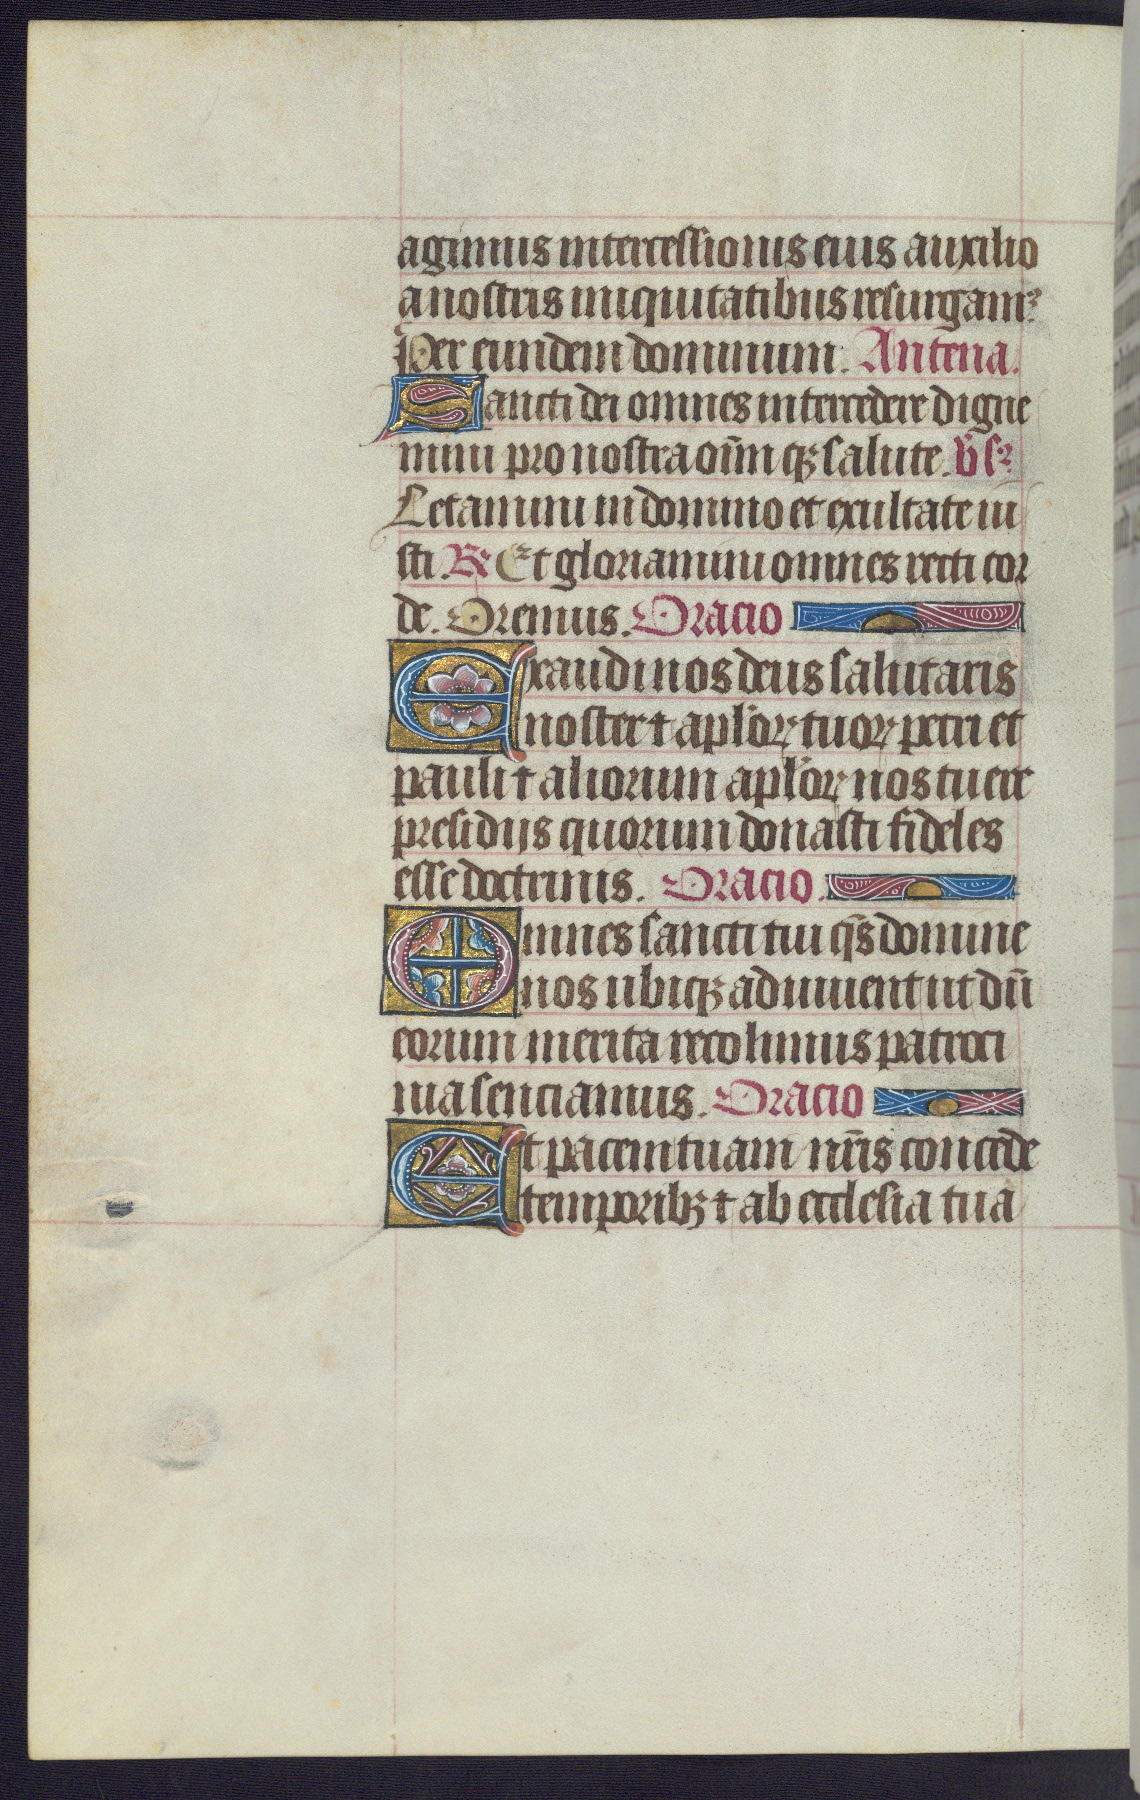 agimus intercessionis eius auxilio
a nostris iniquitatibus resurgamꝰ
Per eundem dominum. Antena.
Sancti dei omnes intercedere digne
mini pro nostra oı̄m qꝫ salute. v̄s
Letamini in domino et exultate iu
sti. R Et gloriamini omnes recti cor
de. Oremus. Oracio
Exaudi nos deus salutaris
noster ⁊ apl'oꝝ tuoꝝ petri et
pauli ⁊ aliorum apl'oꝝ nos tuere
presidijs quorum donasti fideles
esse doctrinis. Oracio.
Omnes sancti tui q̄s domine
nos ubiqꝫ adiuuent ut dū
eorum merita recolimus patroci
nia senciamus. Oracio
Et pacem tuam nr̄is concede
temporibꝫ ⁊ ab ecclesia tua